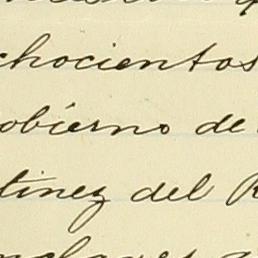 chocientos
obierno de
tinez del R